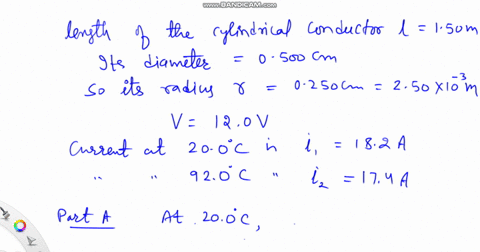 WWW.BANDICAM.COM
length of the cylindrical conductor l = 1.50m
Its diameter = 0.500 cm
So its radius r = 0.250 cm = 2.50 × 10⁻³ m
V = 12.0 V
Current at 20.0°C is i₁ = 18.2 A
" " 92.0°C " i₂ = 17.4 A
Part A At 20.0°C,